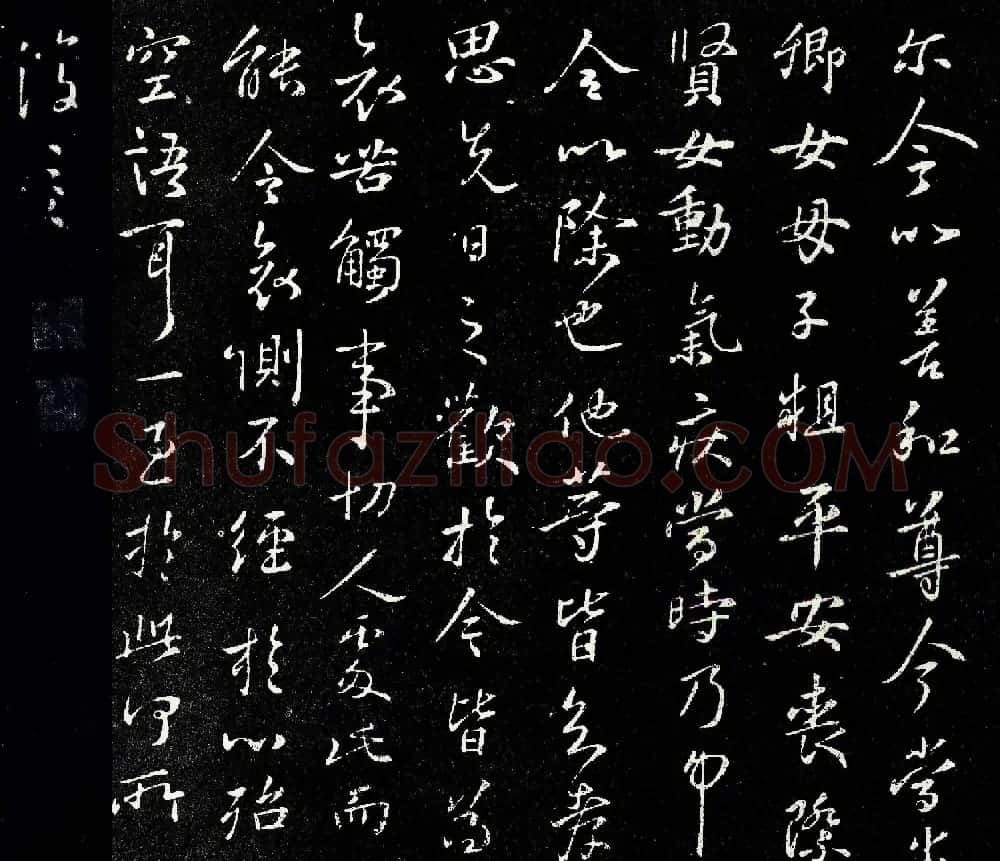 尔今以善和尊今當
卿女母子粗平安喪
賢女動氣疾當時乃
令以除也他等皆
思先日之歡於今皆為
哀苦觸事切人處此而
能令哀惻不經於心殆
空語耳一至於此何所
復言
Shufaziliao.COM